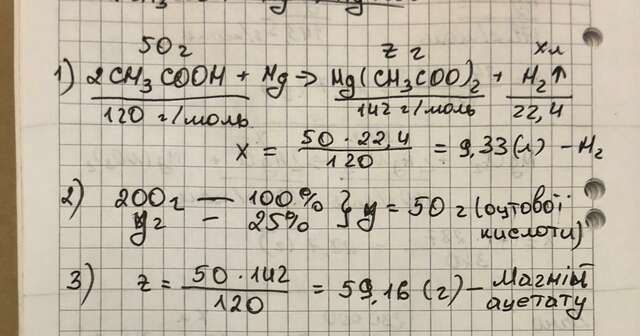 50г z г x л
1) 2CH₃COOH + Mg → Mg(CH₃COO)₂ + H₂↑
120 г/моль 142 г/моль 22,4
x = 50 · 22,4 / 120 = 9,33 (л) – H₂
2) 200г — 100%
yг – 25% } y = 50 г (оцтової кислоти)
3) z = 50 · 142 / 120 = 59,16 (г) – магній ацетату